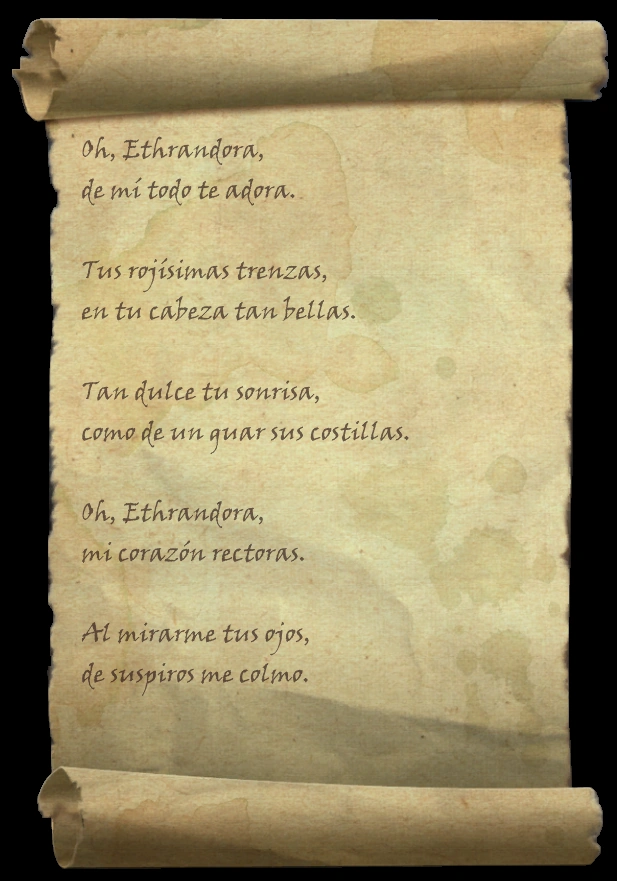 Oh, Ethrandora,
de mí todo te adora.
Tus rojísimas trenzas,
en tu cabeza tan bellas.
Tan dulce tu sonrisa,
como de un guar sus costillas.
Oh, Ethrandora,
mi corazón rectoras.
Al mirarme tus ojos,
de suspiros me colmo.